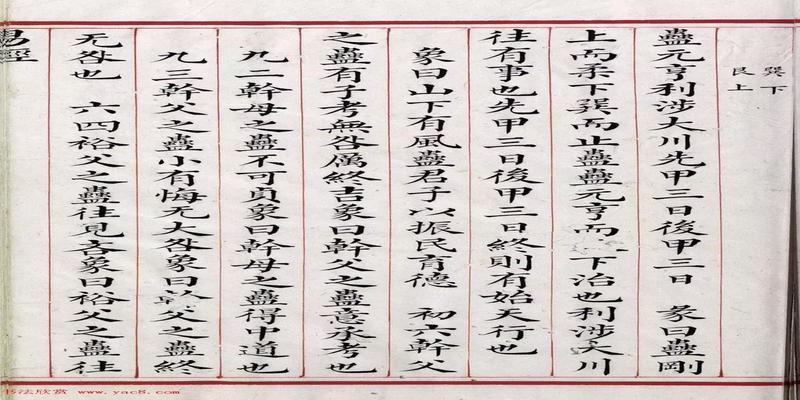 巽下
艮上
蠱元亨利涉大川先甲三日後甲三日　彖曰蠱剛
上而柔下巽而止蠱蠱元亨而　下治也利涉大川
往有事也先甲三日後甲三日終則有始天行也
象曰山下有風蠱君子以振民育德　初六幹父
之蠱有子考無咎厲終吉象曰幹父之蠱意承考也
九二幹母之蠱不可貞象曰幹母之蠱得中道也
九三幹父之蠱小有悔无大咎象曰幹父之蠱終
无咎也　六四裕父之蠱往見吝象曰裕父之蠱往
易經
书法欣赏 www.yac8.com